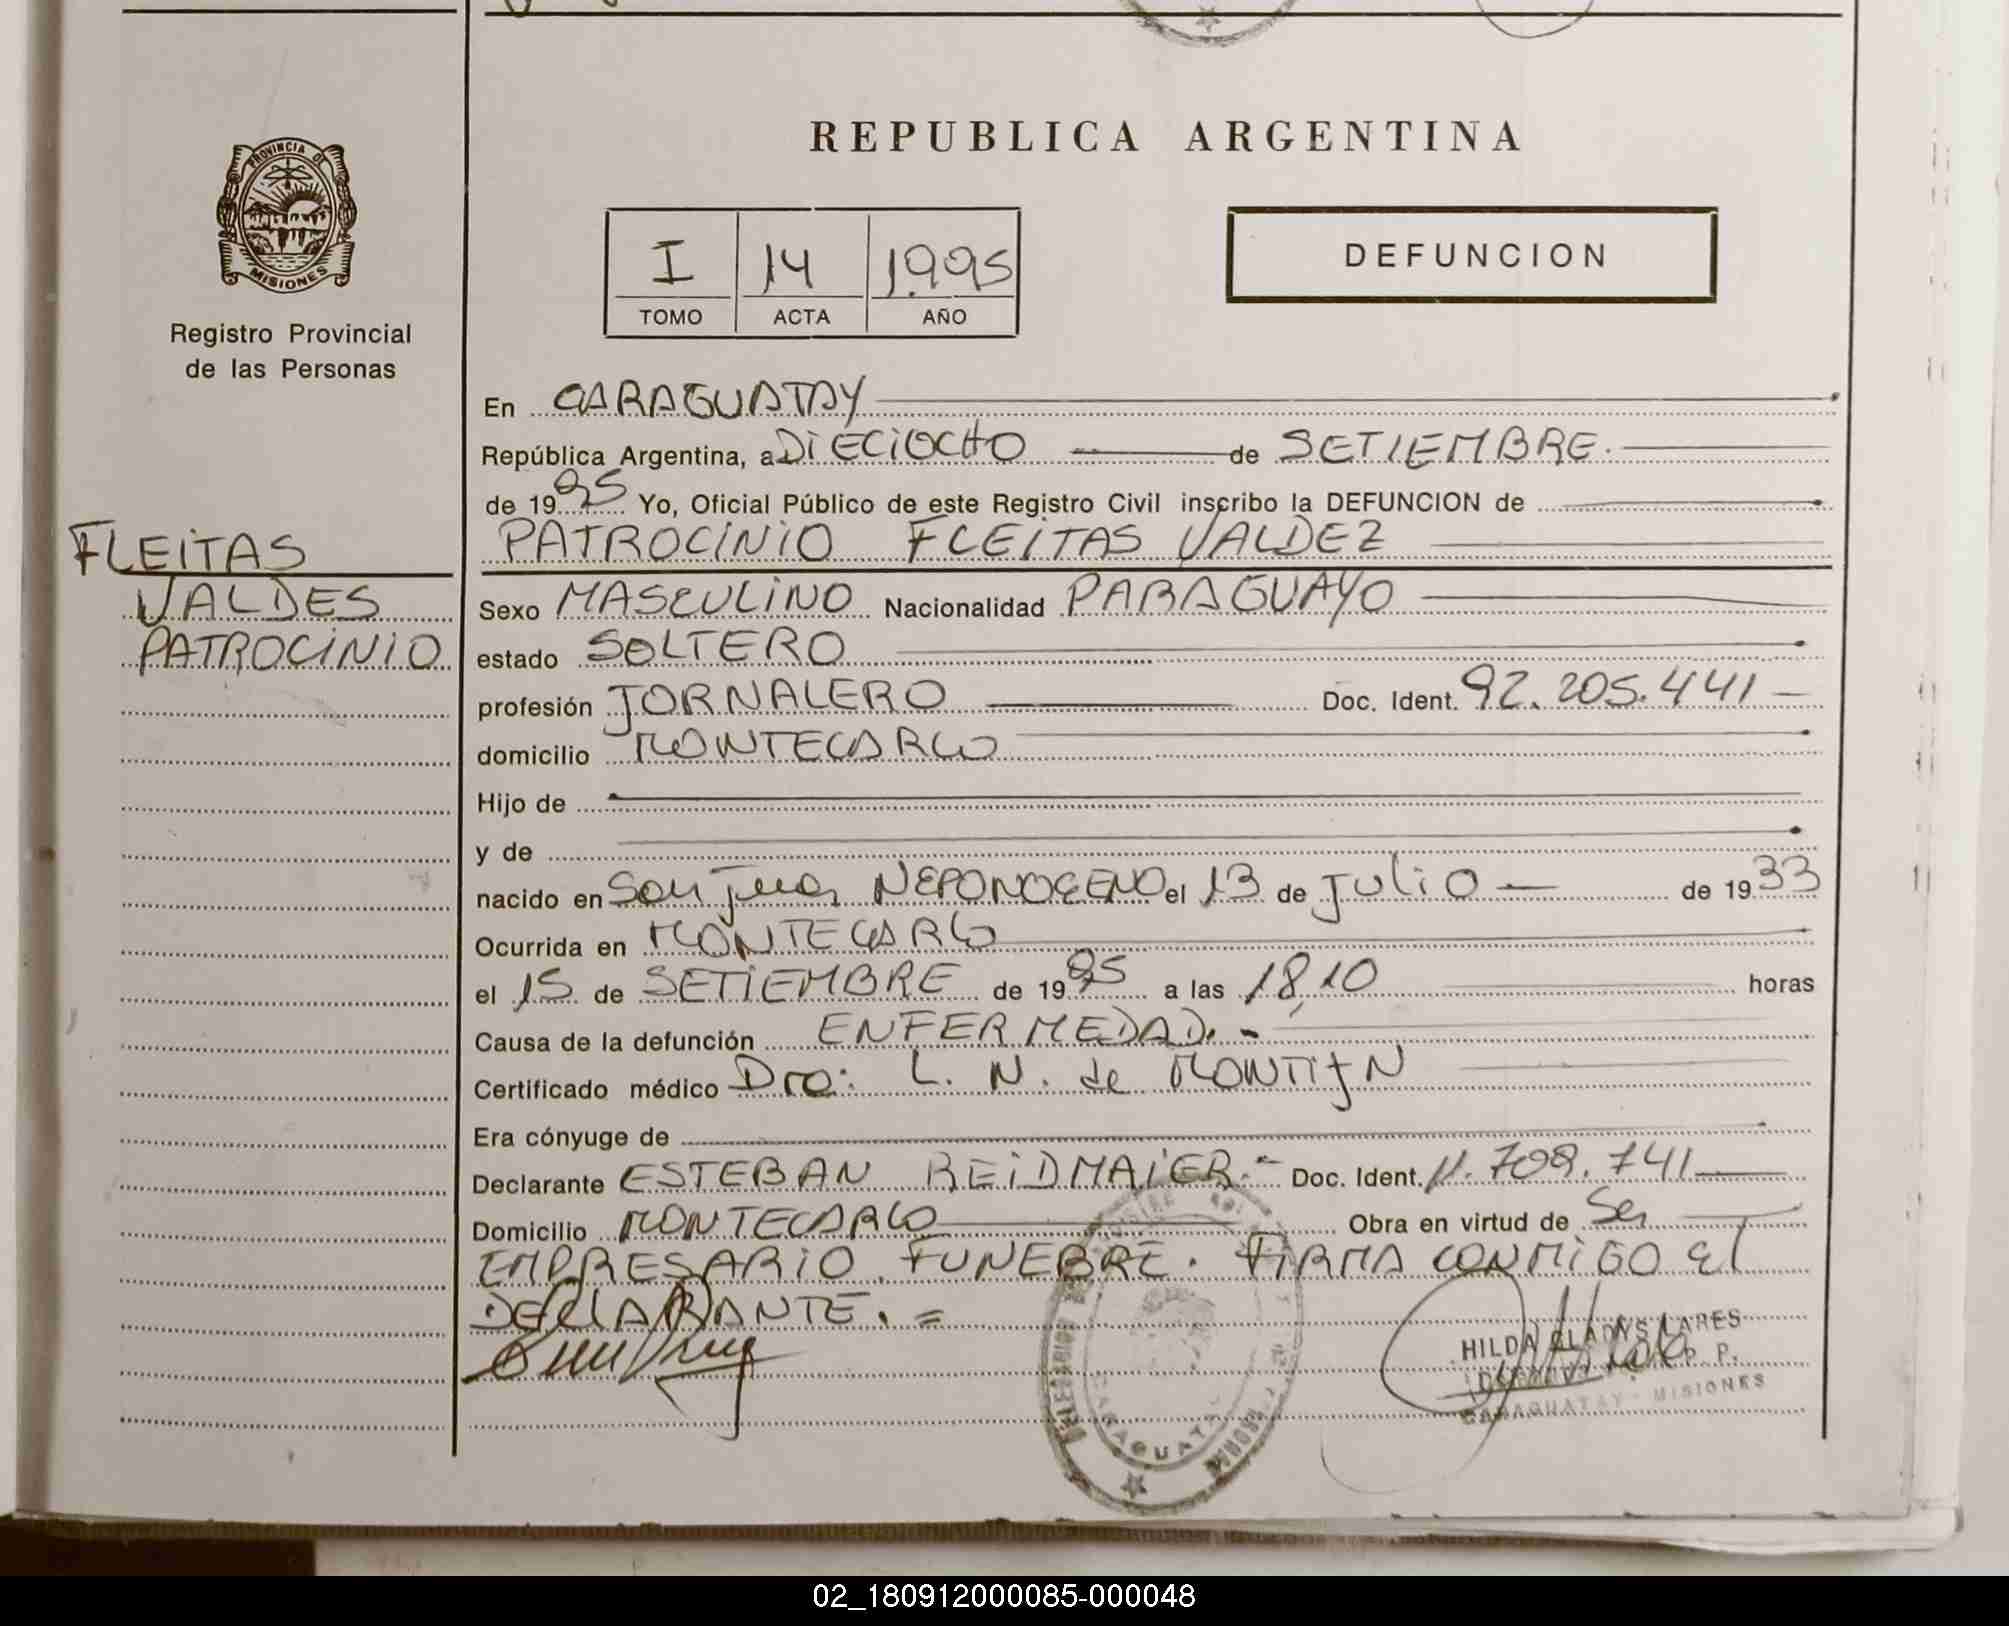 REPUBLICA ARGENTINA
PROVINCIA DE
MISIONES
Registro Provincial
de las Personas
I 14 1995
TOMO ACTA AÑO
DEFUNCION
En CARAGUATAY
República Argentina, a DIECIOCHO de SETIEMBRE.
de 1995 Yo, Oficial Público de este Registro Civil inscribo la DEFUNCION de
PATROCINIO FLEITAS VALDEZ
FLEITAS
VALDES
PATROCINIO
Sexo MASCULINO Nacionalidad PARAGUAYO
estado SOLTERO
profesión JORNALERO Doc. Ident. 92.205.441
domicilio MONTECARLO
Hijo de
y de
nacido en San Juan NEPONOCENO el 13 de JULIO de 1933
Ocurrida en MONTECARLO
el 15 de SETIEMBRE de 1995 a las 18,10 horas
Causa de la defunción ENFERMEDAD.-
Certificado médico Dra: L. N. de
Era cónyuge de
Declarante ESTEBAN REIDMAIER.- Doc. Ident. 11.708.741
Domicilio MONTECARLO Obra en virtud de Ser
EMPRESARIO FUNEBRE. FIRMA CONMIGO El
DECLARANTE.=
HILDA GLADYS LARES
CARAGUATAY - MISIONES
CARAGUATAY
02_180912000085-000048